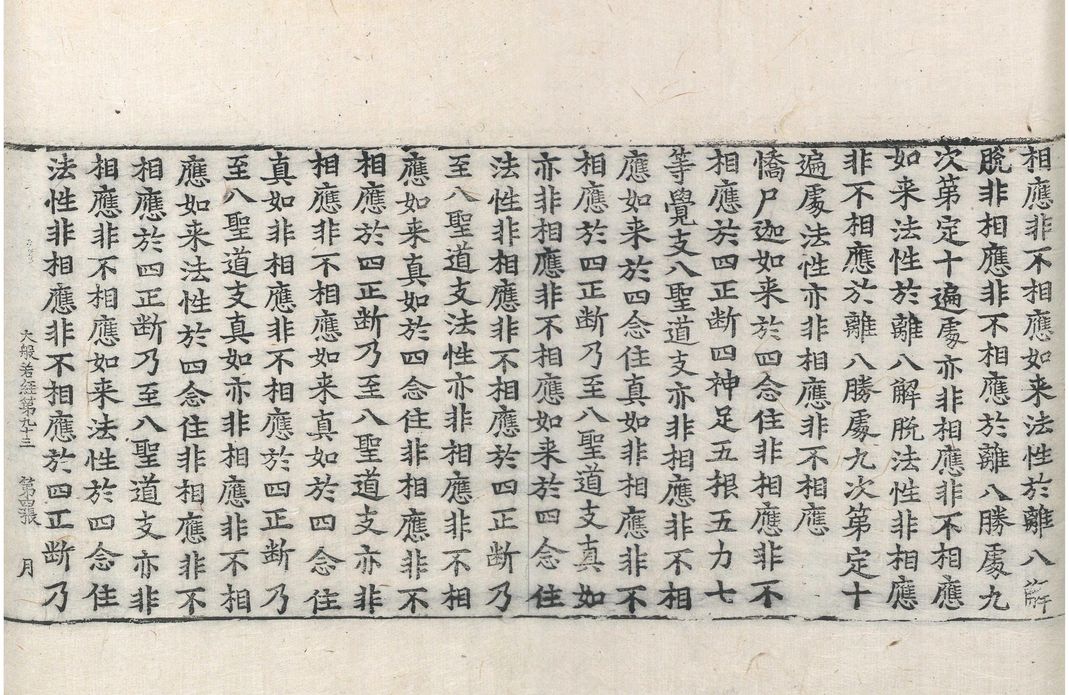 相應非不相應如来法性於離八解
脫非相應非不相應於離八勝處九
次第定十遍處亦非相應非不相應
如来法性於離八解脫法性非相應
非不相應於離八勝處九次第定十
遍處法性亦非相應非不相應
憍尸迦如来於四念住非相應非不
相應於四正断四神足五根五力七
等覺支八聖道支亦非相應非不相
應如来於四念住真如非相應非不
相應於四正断乃至八聖道支真如
亦非相應非不相應如来於四念住
法性非相應非不相應於四正断乃
至八聖道支法性亦非相應非不相
應如来真如於四念住非相應非不
相應於四正断乃至八聖道支亦非
相應非不相應如来真如於四念住
真如非相應非不相應於四正断乃
至八聖道支真如亦非相應非不相
應如来法性於四念住非相應非不
相應於四正断乃至八聖道支亦非
相應非不相應如来法性於四念住
法性非相應非不相應於四正断乃
大般若経第九三 第張 月